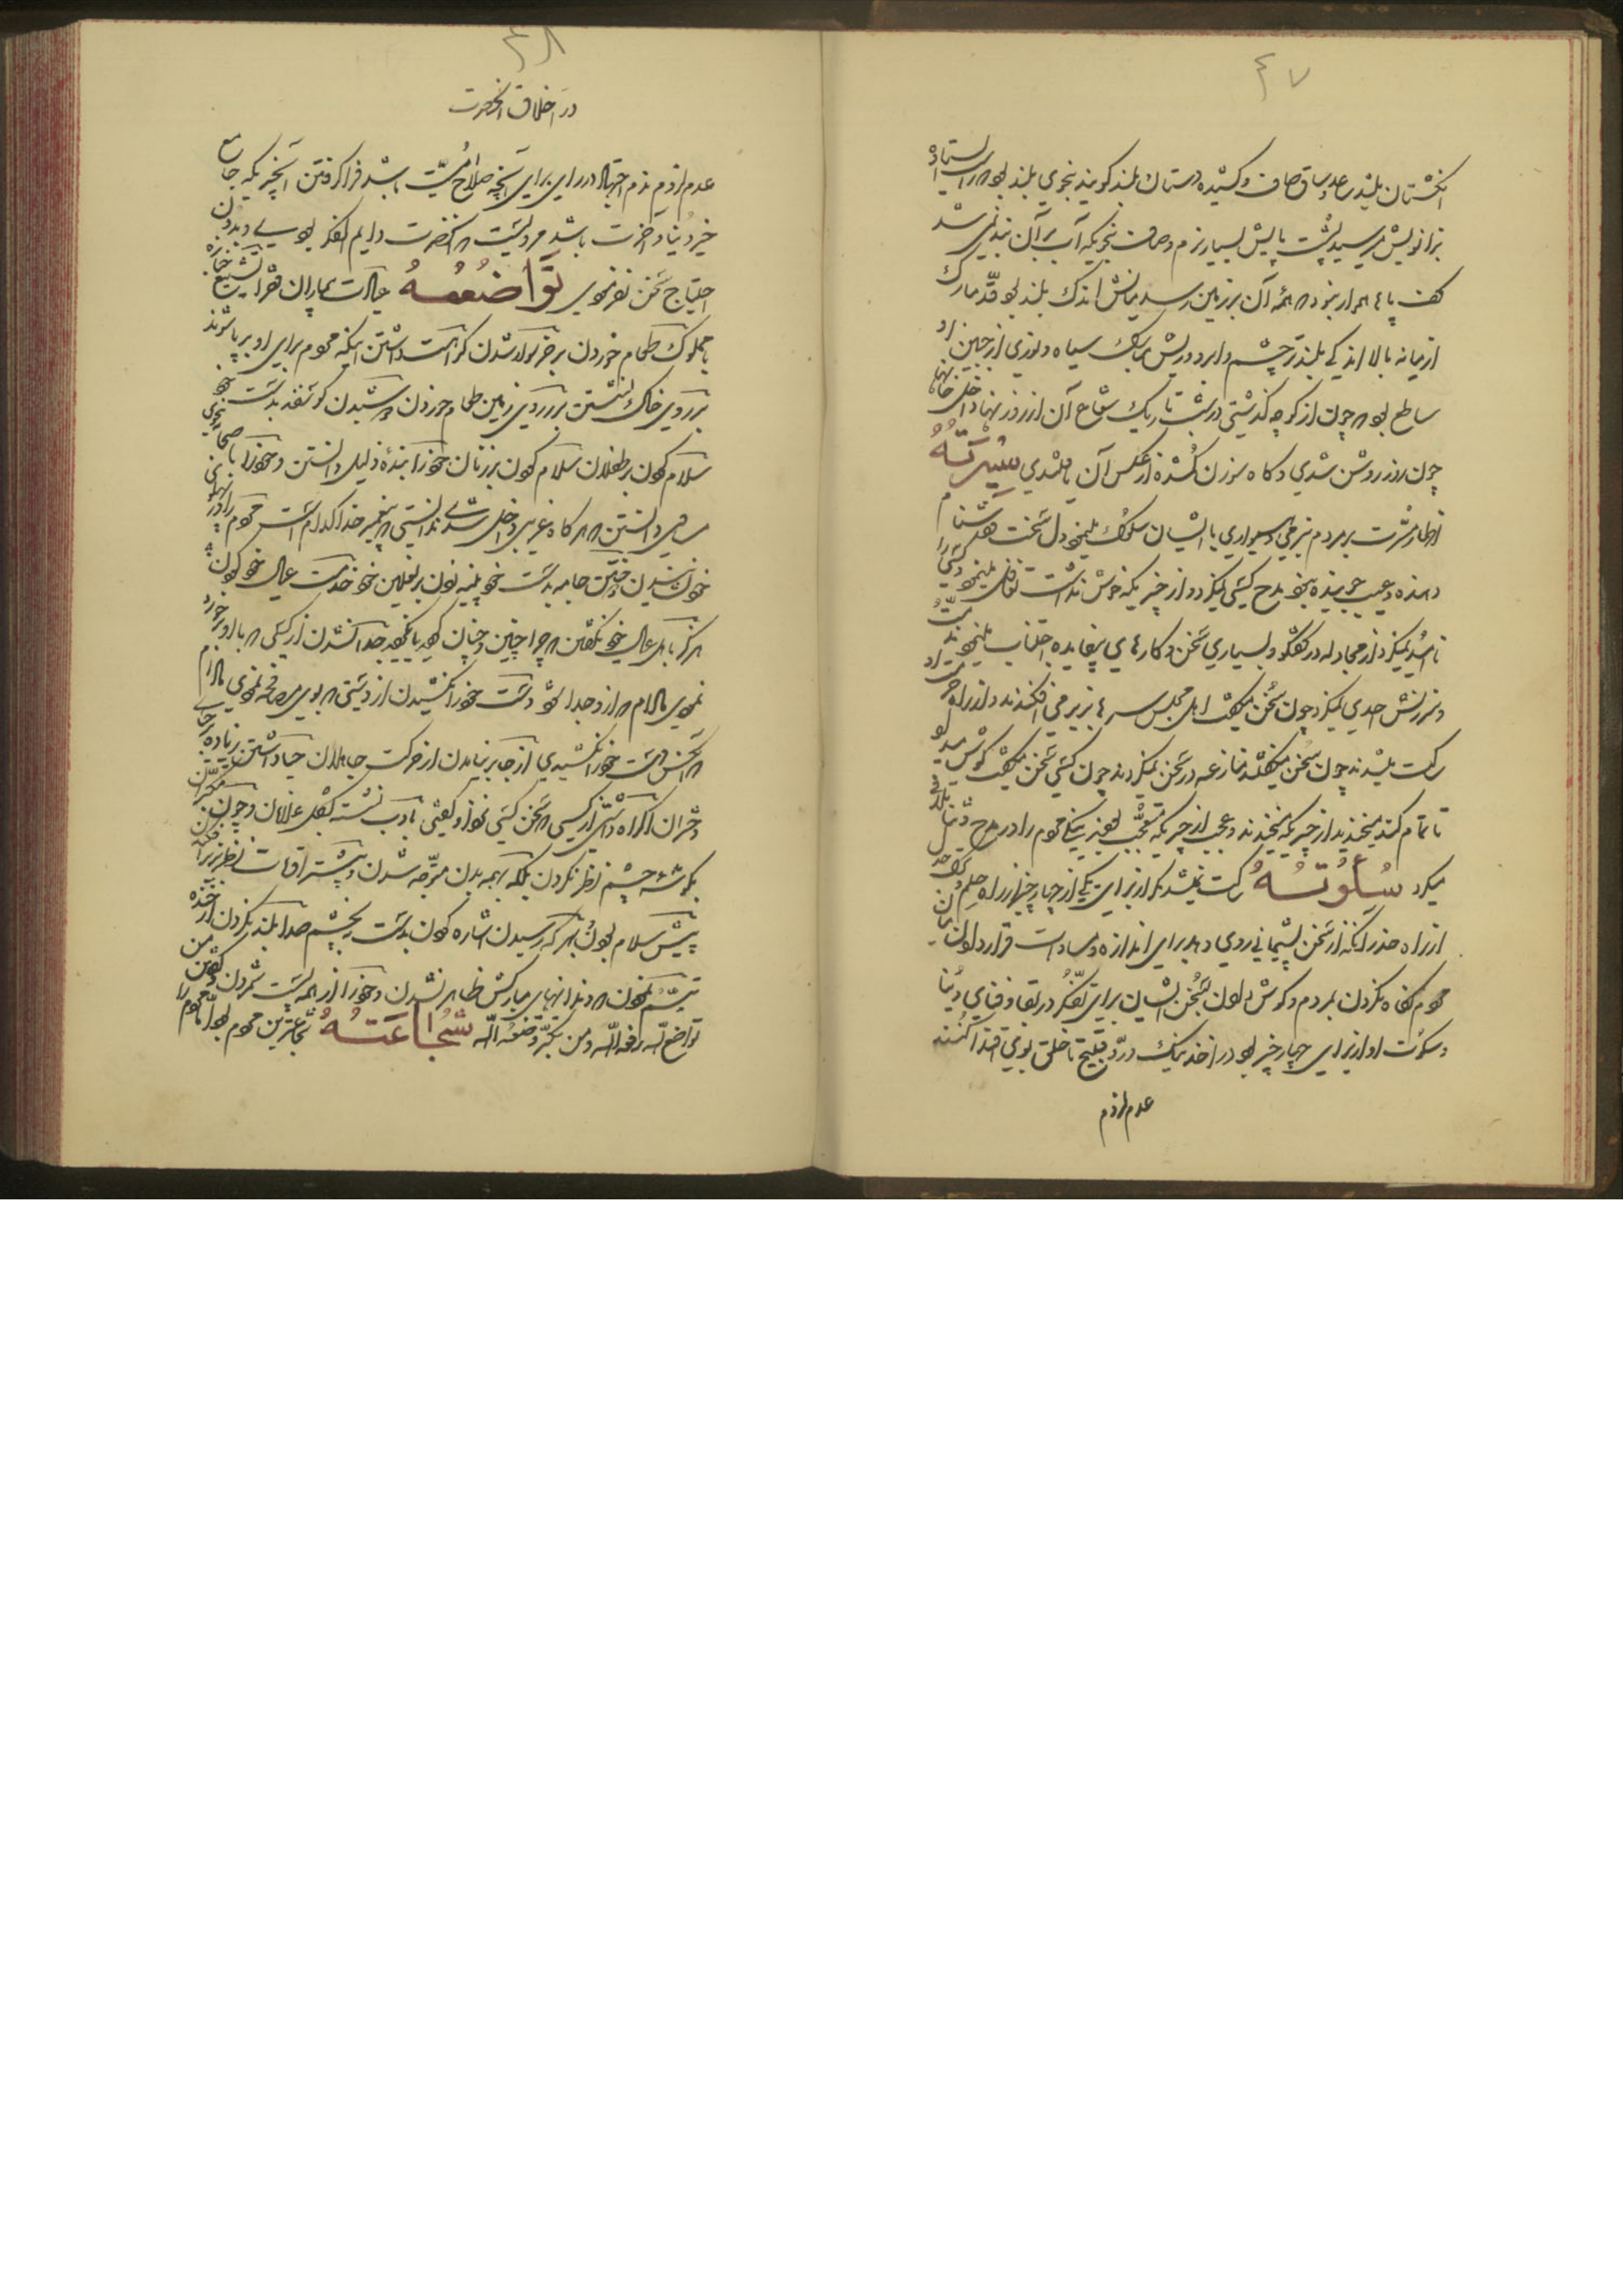 ٤٧
انگشتان بلند ساعد و ساق صاف و کشیده دستان بلند گویند بنحوی بلند بود که راست ایستاد
بزانویش میرسید پشت پایش بسیار نرم و صاف بنحویکه آب بر آن بند نمی شد
کف پاها هموار نبود که همه آن بر زمین رسد میانش اندک بلند بود قد مبارک
از میانه بالا اندکی بلندتر چشم و ابرو و ریش مبارک سیاه و نوری از جبین او
ساطع بود که چون از کوچه گذشتی در شب تاریک شعاع آن از روزنها داخل خانها
چون روز روشن شدی و گاه سوزن گمشده از عکس آن یافتندی سیرته
اظهار بشرت بمردم نرمی و همواری با ایشان سلوک مینمود دل سخت
دهنده و عیب جوینده نبود مدح کسی نمیکرد و از چیزیکه خوش نداشت تغافل مینمود
ناامید نمیکرد از مجادله در گفتگو و بسیاری سخن و کارهای بیفایده اجتناب مینمود
و سرزنش احدی نمیکرد چون سخن میگفت اهل مجلس سرها بزیر می افکندند و از راه
حرکت نمیشدند چون سخن میگفتند منازعه در سخن نمیکردند چون کسی سخن میگفت گوش میداد
تا تمام کند میخندید از چیزیکه میخندند و عجب از چیزیکه تعجب
میکرد سکوته ساکت نمیشد مگر از برای یکی از چهار چیز از راه حلم
از راه حذر آنکه از سخن پشیمانی روی دهد برای اندازه و مساوات قرار دادن
مردم نگاه نکردن بمردم و گوش دادن بسخن ایشان برای تفکر در بقا و فنای دنیا
و سکوت او از برای چهار چیز بود در اخذ نیک و رد قبیح تا خلق بوی اقتدا کنند
عدم لزوم
٤٨
در اخلاق آنحضرت
عدم لزوم اجتهاد در رای برای آنچه صلاح امت باشد فرا گرفتن آنچیزیکه جامع
خیر دنیا و آخرت باشد مرویست که آنحضرت دایم الفکر بودی و بدون
احتیاج سخن نفرمودی تواضعه عیادت بیماران فقرا تشییع جنازه
با مملوک طعام خوردن بر خر سوار شدن کراهت داشتن اینکه مردم برای او برپا شوند
بر روی خاک نشستن بر روی زمین طعام خوردن دوشیدن گوسفند بدست خود
سلام کردن بر طفلان سلام کردن بر زنان خود را بنده ذلیل دانستن و خود را با صحابه بنحوی
مساوی دانستن که هر گاه غریبی داخل شدی ندانستی که پیغمبر خدا کدام است
دوختن جامه بدست خود پینه زدن بر نعلین خود خدمت عیال خود کردن
هرگز باهل و عیال خود نگفتن که چرا چنین و چنان کردید یا نکردید جدا نشدن از کسی که با او برخورد
نمودی مادام که از او جدا شود دست خود را نکشیدن از دستی که با وی مصافحه نمودی مادام
که آنکس دست خود را نکشیدی از جا بر نیامدن از حرکت جاهلان حیا داشتن زیاده
دختران اکراه داشتن از کسی که سخن کسی نزد او گفتی با ادب نشستن مثل غلامان
بگوشه چشم نظر نکردن بلکه بهمه بدن متوجه شدن و بیشتر اوقات نظر بزیر
پیش سلام بودن بهر که رسیدن اشاره کردن بدست نه بچشم صدا بلند نکردن از خنده
تبسم نمودن که دندانهای مبارکش ظاهر نشدن و خود را از همه پست شمردن و گفتن من
تواضع لله رفعه الله و من تکبر وضعه الله شجاعته شجاعترین مردم بود